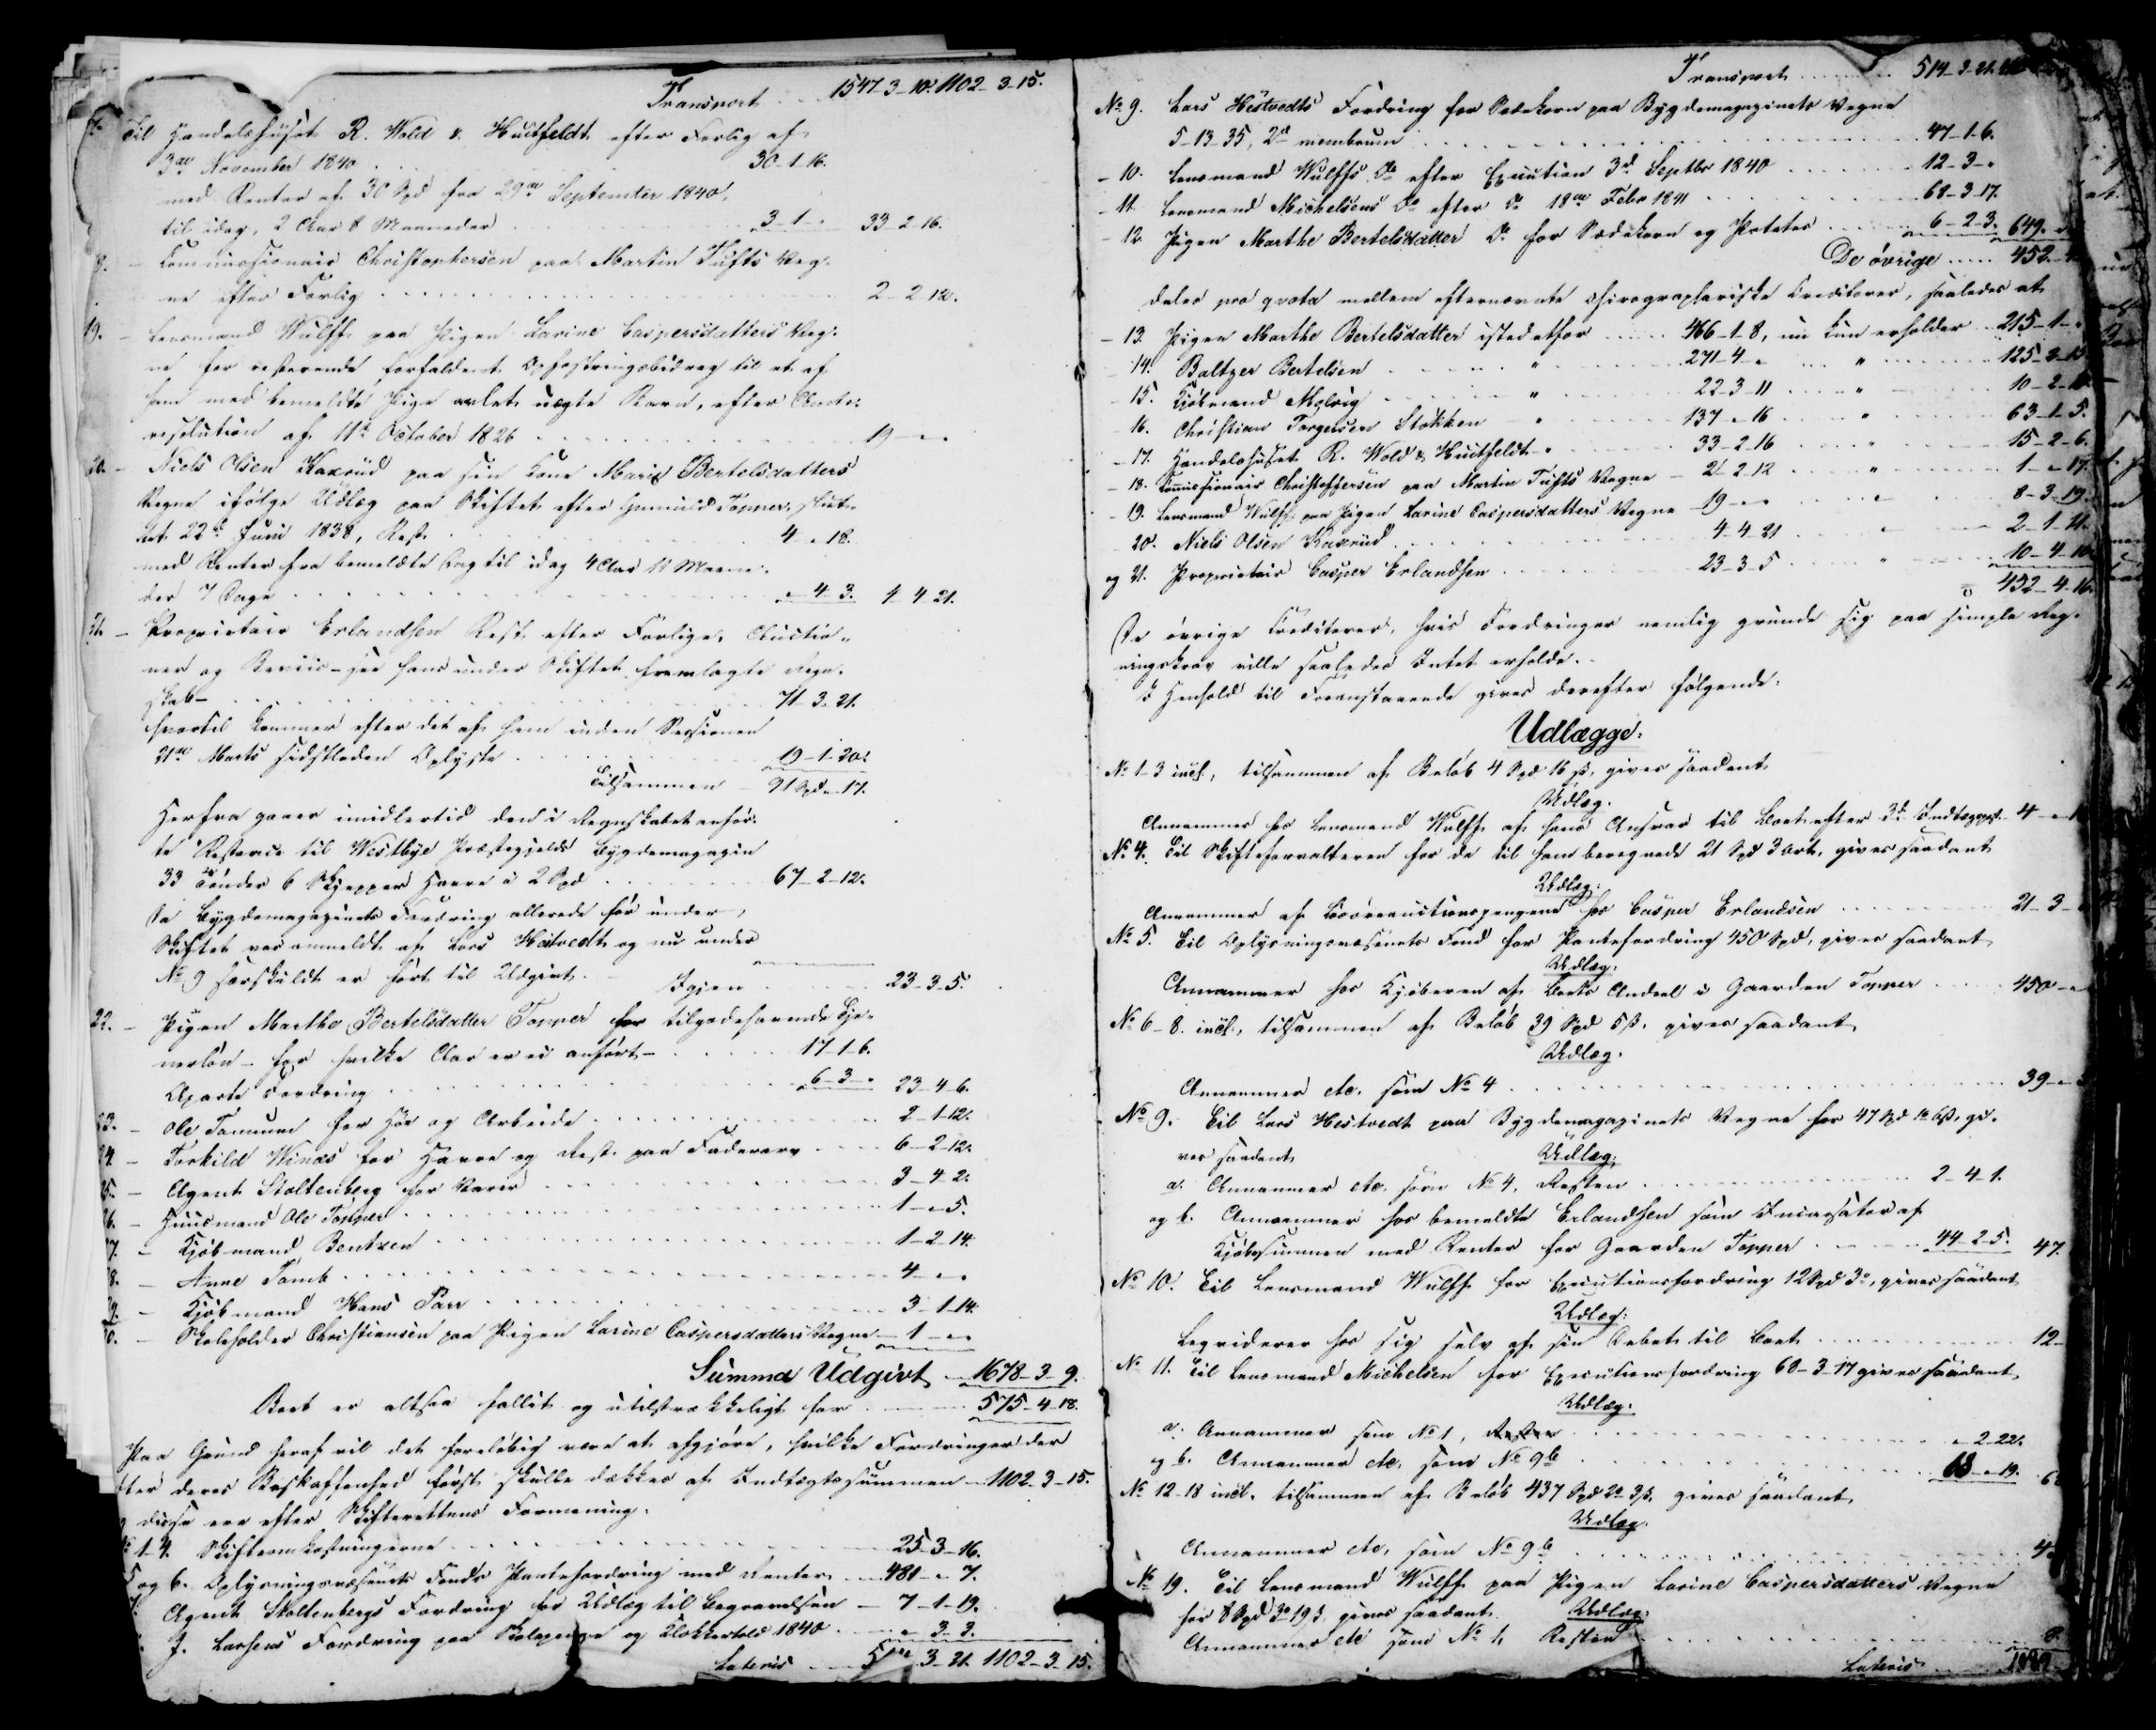 Transport . . . 1547-3-10. 1102-3-15.
Til Handelshuset R. Wold & Huitfeldt efter Forlig af
3die November 1840 . . . 30-1-16.
med Renter af 30 Spd fra 29de September 1840,
til idag, 2 Aar 8 Maaneder . . . 3-1-" 33-2-16.
8. - Commissionair Christophersen paa Martin Tufts Veg-
ne efter Forlig . . . 2-2-12.
19. - Lensmand Wulff paa Pigen Larine Caspersdatters Veg-
ne for resterende forfaldent Opfostringsbidrag til et af
ham med bemeldte Pige avlet uægte Barn, efter Amts-
resolution af 11te October 1826 . . . 19-"-"
20. - Niels Olsen Kaxrud paa sin Kone Marie Bertelsdatters
Vegne ifølge Udlæg paa Skiftet efter Gunnild Topper, slut-
tet 22de Juni 1838, Rest . . . 4-"-18.
med Renter fra bemeldte Dag til idag 4 Aar 11 Maane-
der 7 Dage . . . "-4-3. 4-4-21.
21. - Proprietair Erlandsen Rest efter Forlige, Auctio-
ner og Beviis - see hans under Skiftet fremlagte Regn-
skab - . . . 71-3-21.
hvortil kommer efter det af ham inden Sessionen
21de Marts sidstleden Oplyste . . . 19-1-20.
Tilsammen - 91 Spd "-17.
Herfra gaaer imidlertid den i Regnskabet anfør-
te Restance til Westbye Præstegjelds Bygdemagazin
33 Tønder 6 Skjepper Havre à 2 Spd . . . 67-2-12.
da Bygdemagazinets Fordring allerede før under
Skiftet var anmeldt af Lars Hestvedt og nu under
No 9 særskildt er ført til Udgivt. - Igjen . . . 23-3-5.
22. - Pigen Marthe Bertelsdatter Topper for tilgodehavende Tje-
nerløn - for hvilke Aar er ei anført - . . . 17-1-6.
Aparte Fordring . . . 6-3-" 23-4-6.
23. - Ole Tømmer for Høe og Arbeide . . . 2-1-12.
24. - Torkild Winæs for Havre og Rest paa Faderarv . . . 6-2-12.
25. - Agent Stoltenberg for Varer . . . 3-4-2.
26. - Huusmand Ole Topper . . . 1-"-5.
27. - Kjøbmand Bentzen . . . 1-2-14.
28. - Anne Tomb . . . 4-"-"
29. - Kjøbmand Hans Parr . . . 3-1-14.
30. - Skoleholder Christiansen paa Pigen Larine Caspersdatters Vegne - 1-"-"
Summa Udgivt - 1678-3-9.
Boet er altsaa fallit og utilstrækkeligt for . . . 575-4-18.
Paa Grund heraf vil det foreløbig være at afgjøre, hvilke Fordringer der
efter deres Beskaffenhed først skulle dækkes af Indtægtssummen - 1102-3-15.
disse ere efter Skifterettens Formening:
No 1-4. Skifteomkostningerne . . . 25-3-16.
5 og 6. Oplysningsvæsenets Fonds Pantefordring med Renter . . . 481-"-7.
7. Agent Stoltenbergs Fordring for Udlæg til Begravelsen - 7-1-19.
J. Larsens Fordring paa Skolepenge og Klokkertold 1840 . . . "-3-3.
Lateris . . . 514-3-21. 1102-3-15.
Transport . . . 514-3-21.
No 9. Lars Hestvedts Fordring for Sædekorn paa Bygdemagazinets Vegne
5-13-35, 2det membrum . . . 47-1-6.
- 10. Lensmand Wulffs Do efter Execution 3de Septbr 1840 . . . 12-3-"
- 11. Lensmand Michelsens Do efter Do 18de Febr 1841 . . . 68-3-17.
- 12. Pigen Marthe Bertelsdatter Do for Sædekorn og Potetes . . . 6-2-3. 649-
De øvrige . . . 452-
deles pro qvota mellem efternævnte chirographariske Creditorer, saaledes at
- 13. Pigen Marthe Bertelsdatter istedetfor . . . 466-1-8, nu kun erholder . . 215-1-
14. Baltzer Bertelsen . . . " . . . 271-4-" . . . " . . . 125-2-15
- 15. Kjøbmand Mølvig . . . " . . . 22-3-11 . . . " . . . 10-2-
16. Christian Torgersen Stokken - " . . . 137-"-16 . . . " . . . 63-1-5.
- 17. Handelshuset R. Wold & Huitfeldt - " . . . 33-2-16 . . . " . . . 15-2-6.
- 18. Commissionair Christophersen paa Martin Tufts Vegne - 2-2-12 . . . " . . . 1-"-17.
- 19. Lensmand Wulff paa Pigen Larine Caspersdatters Vegne - 19-"-" . . . " . . . 8-3-19.
20. Niels Olsen Kaxrud . . . 4-4-21 . . . " . . . 2-1-11.
og 21. Proprietair Casper Erlandsen . . . 23-3-5 . . . " . . . 10-4-10
452-4-16.
De øvrige Creditorer, hvis Fordringer nemlig grunde sig paa simple Reg-
ningskrav ville saaledes Intet erholde.
I Henhold til Foranstaaende gives derefter følgende:
Udlægge:
No 1-3 incl., tilsammen af Beløb 4 Spd 16 ß, gives saadant
Udlæg:
Annammes hos Lensmand Wulff af hans Ansvar til Boet efter 3de Indtægtspost 4-"-1
No 4. Til Skifteforvalteren for de til ham beregnede 21 Spd 3 ort, gives saadant
Udlæg:
Annammes af Løsøreauctionspengene hos Casper Erlandsen . . . 21-3-
No 5. Til Oplysningsvæsenets Fond for Pantefordring 450 Spd, gives saadant
Udlæg:
Annammes hos Kjøberen af Boets Andeel i Gaarden Topper . . . 450-"
No 6-8. incl., tilsammen af Beløb 39 Spd 5 ß, gives saadant
Udlæg:
Annammes etc. som No 4 . . . 39-"-
No 9. Til Lars Hestvedt paa Bygdemagazinets Vegne for 47 Spd 1o 6ß, gi-
ves saadant Udlæg:
a. Annammes etc. som No 4, Resten . . . 2-4-1.
og b. Annammes hos bemeldte Erlandsen som Incassator af
Kjøbesummen med Renter for Gaarden Topper . . . 44-2-5. 47.
No 10. Til Lensmand Wulff for Executionsfordring 12 Spd 3o, gives saadant
Udlæg:
Liqviderer hos sig selv af sin Debet til Boet . . . 12-
No 11. Til Lensmand Michelsen for Executionsfordring 68-3-17 gives saadant
Udlæg:
a. Annammes som No 1, Resten . . . "-2-22.
og b. Annammes etc. som No 9b . . . 68-"-19. 6
No 12-18 incl. tilsammen af Beløb 437 Spd 2o 3ß, gives saadant
Udlæg:
Annammes etc. som No 9b . . . 4
No 19. Til Lensmand Wulff paa Pigen Larine Caspersdatters Vegne
for 8 Spd 3o 19ß gives saadant Udlæg:
Annammes etc som No 1, Resten . . . 8.
Lateris . . . 1089